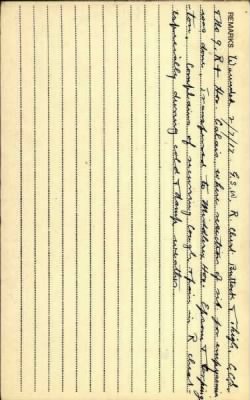 REMARKS Wounded 2/7/17 G.S.W. R chest Buttock & thigh. C.C.S.
& No 9. R + Hos. Calais where resection of rib for empyema
was done. Transferred to Middlesex Hos. Epsom &
complains of recurring cough & pain in R chest
especially during cold & damp weather.